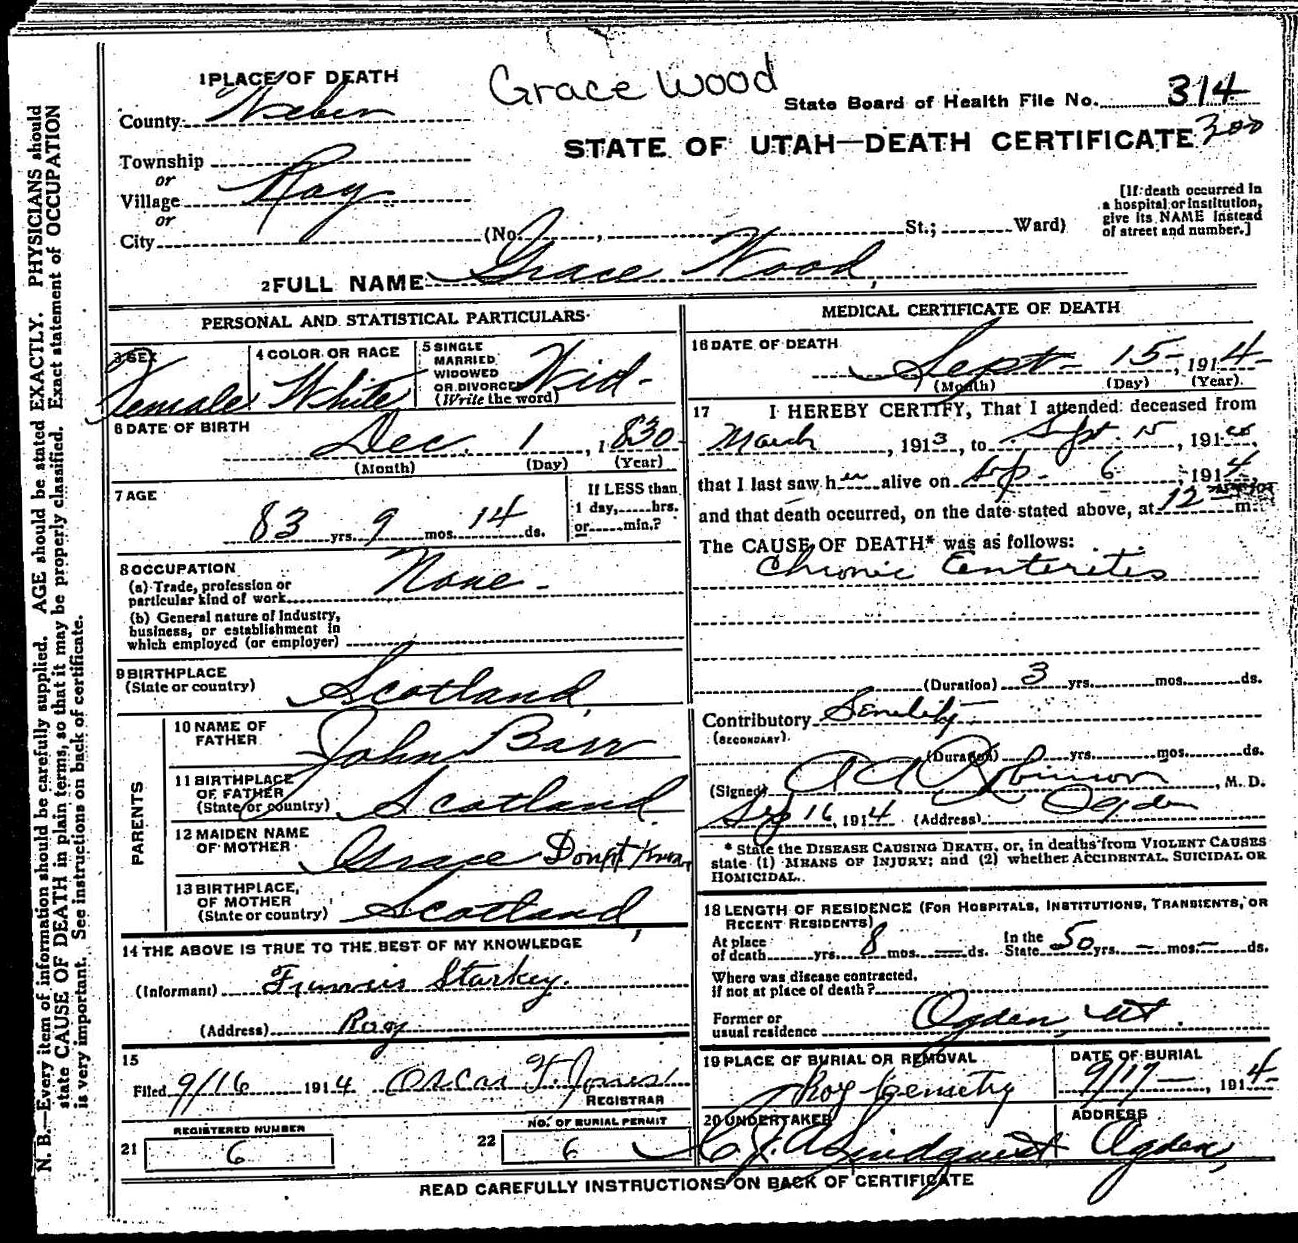 N. B.—Every item of information should be carefully supplied. AGE should be stated EXACTLY. PHYSICIANS should
state CAUSE OF DEATH in plain terms, so that it may be properly classified. Exact statement of OCCUPATION
is very important. See instructions on back of certificate.
Grace Wood
1 PLACE OF DEATH
County Weber
State Board of Health File No. 314
STATE OF UTAH—DEATH CERTIFICATE 300
Township
or
Village Roy
or
City (No. , St.; Ward)
[If death occurred in
a hospital or institution,
give its NAME instead
of street and number.]
2 FULL NAME Grace Wood,
PERSONAL AND STATISTICAL PARTICULARS
3 SEX Female
4 COLOR OR RACE White
5 SINGLE
MARRIED
WIDOWED
OR DIVORCED
(Write the word) Wid-
6 DATE OF BIRTH
Dec. 1, 1830
(Month) (Day) (Year)
7 AGE
83 yrs. 9 mos. 14 ds.
If LESS than
1 day, hrs.
or min.?
8 OCCUPATION
(a) Trade, profession or
particular kind of work None -
(b) General nature of Industry,
business, or establishment in
which employed (or employer)
9 BIRTHPLACE
(State or country) Scotland
PARENTS
10 NAME OF
FATHER John Barr
11 BIRTHPLACE
OF FATHER
(State or country) Scotland
12 MAIDEN NAME
OF MOTHER Grace Don't Know
13 BIRTHPLACE,
OF MOTHER
(State or country) Scotland,
14 THE ABOVE IS TRUE TO THE BEST OF MY KNOWLEDGE
(Informant) Starkey.
(Address) Roy
15
Filed 9/16 1914 Oscar F. Jones
REGISTRAR
21 REGISTERED NUMBER
6
22 NO. OF BURIAL PERMIT
6
MEDICAL CERTIFICATE OF DEATH
16 DATE OF DEATH
Sept- 15-, 1914-
(Month) (Day) (Year)
17 I HEREBY CERTIFY, That I attended deceased from
March, 1913, to Sept. 15, 191
that I last saw her alive on Sep- 6, 1914,
and that death occurred, on the date stated above, at 12 m.
The CAUSE OF DEATH* was as follows:
Chronic Enteritis
(Duration) 3 yrs. mos. ds.
Contributory Senility
(SECONDARY)
(Duration) yrs. mos. ds.
(Signed) A A Robinson, M. D.
Sep 16, 1914 (Address) Ogden
* State the DISEASE CAUSING DEATH, or, in deaths from VIOLENT CAUSES
state (1) MEANS OF INJURY; and (2) whether ACCIDENTAL, SUICIDAL OR
HOMICIDAL.
18 LENGTH OF RESIDENCE (FOR HOSPITALS, INSTITUTIONS, TRANSIENTS, OR
RECENT RESIDENTS)
At place
of death yrs. 8 mos. — ds.
In the
State 50 yrs. — mos. — ds.
Where was disease contracted,
if not at place of death?
Former or
usual residence Ogden, Ut.
19 PLACE OF BURIAL OR REMOVAL
Roy Cemetry
DATE OF BURIAL
9/17 —, 1914
20 UNDERTAKER
C. J. A Lindquist
ADDRESS
Ogden,
READ CAREFULLY INSTRUCTIONS ON BACK OF CERTIFICATE